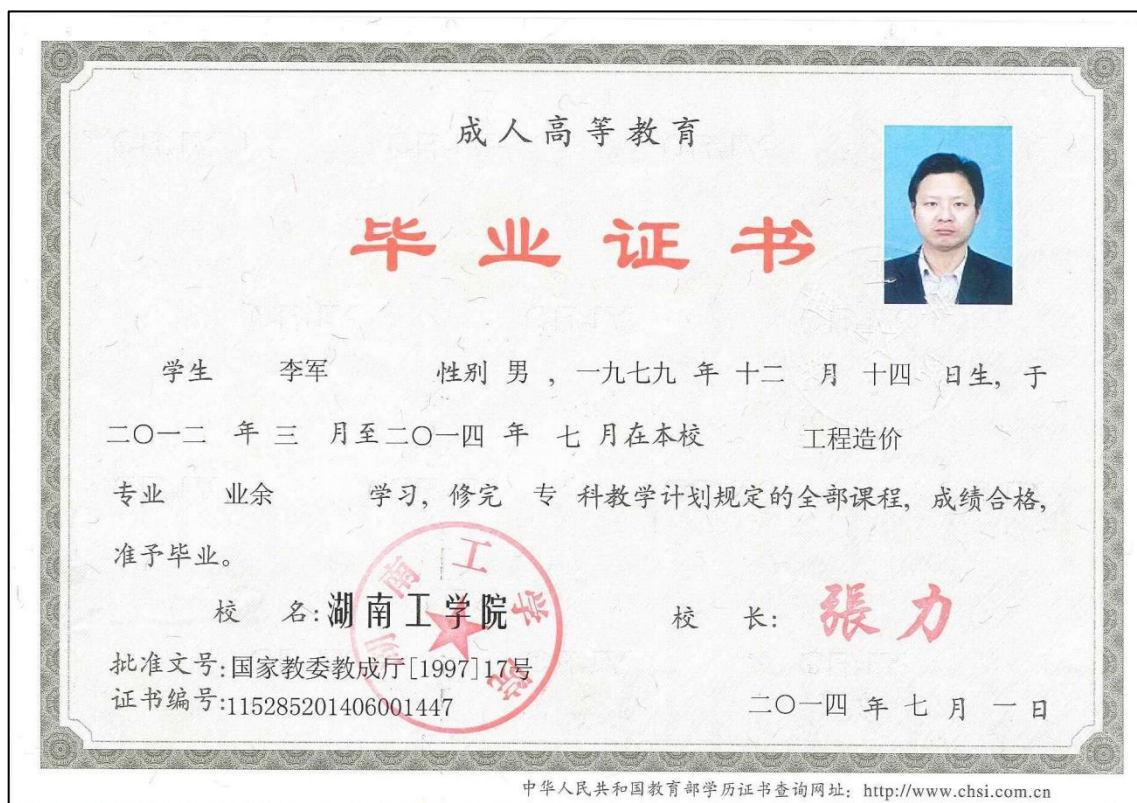 成人高等教育
毕业证书
学生 李军 性别 男 , 一九七九 年 十二 月 十四 日生, 于
二〇一二 年 三 月至二〇一四 年 七 月在本校 工程造价
专业 业余 学习, 修完 专 科教学计划规定的全部课程, 成绩合格,
准予毕业。
湖南工学院
校 名: 湖南工学院 校 长: 張力
批准文号: 国家教委教成厅[1997]17号
证书编号: 115285201406001447 二〇一四 年 七 月 一 日
中华人民共和国教育部学历证书查询网址: http://www.chsi.com.cn